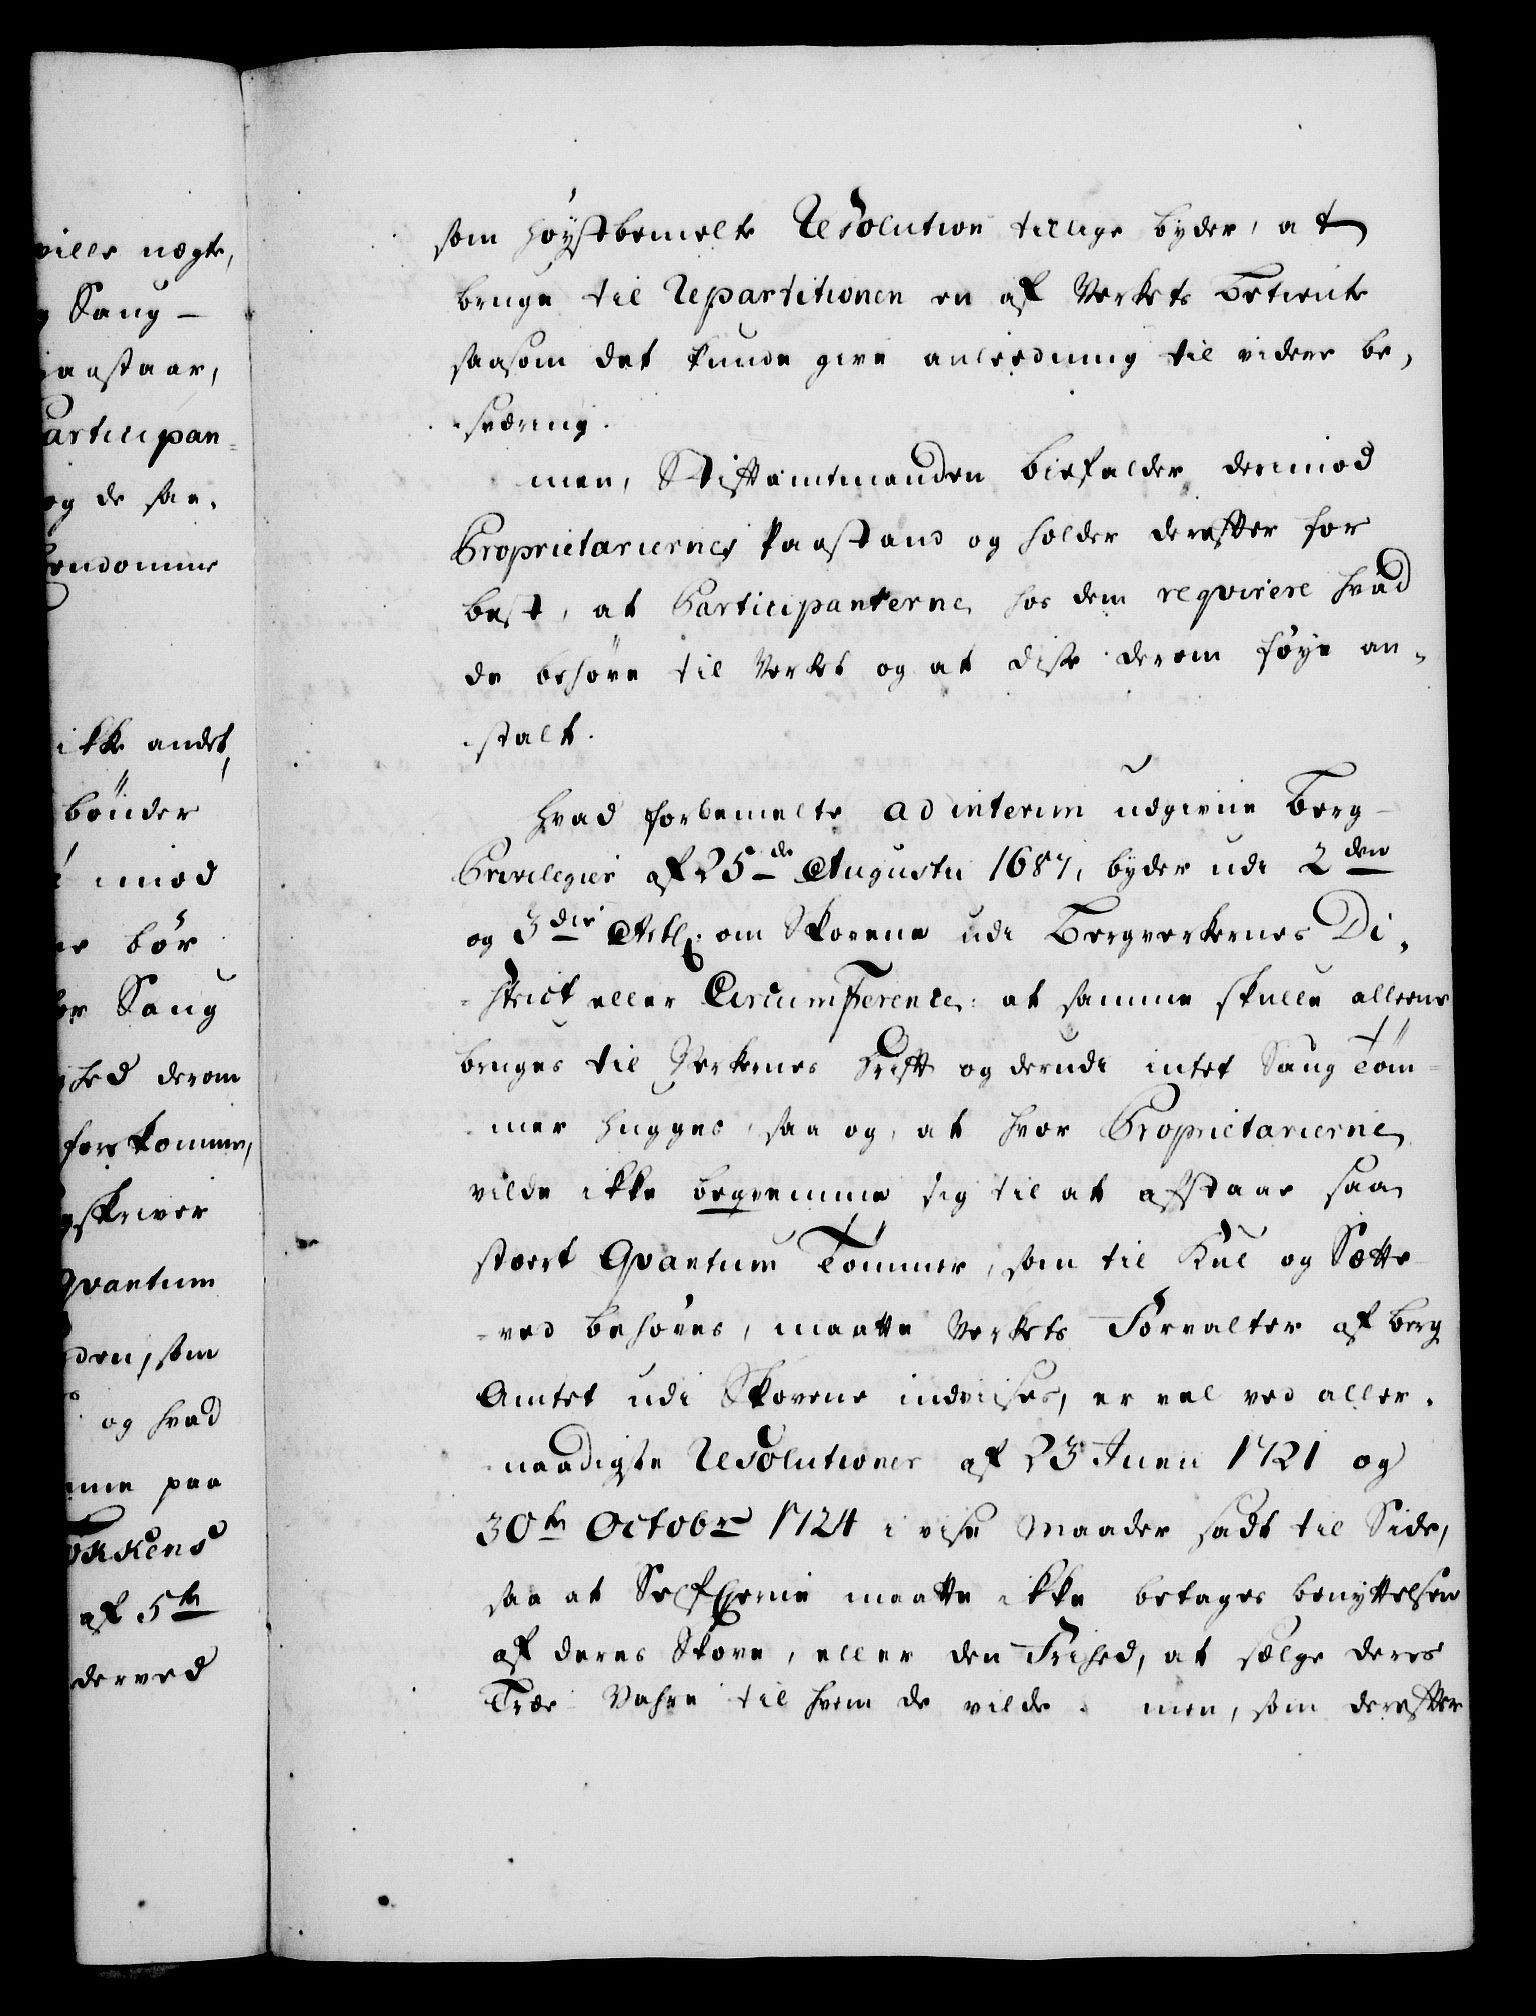 ville nægte,
Saug-
paastaar,
Participan-
og de saa-
ikke andet,
bønder
imod
bør
Saug
derom
forekomme,
Qvantum
som
og hvad
paa
af 5te
derved
som høystbemelte Resolution tillige byder, at
bruge til Repartitionen en af Verkets Betiente
saasom det kunde give anleedning til videre be-
-sværing.
men, Stiftamtmanden biefalder derimod
Proprietariernes Paastand og holder derefter for
best, at Participanterne hos dem reqvirere hvad
de behøve til Verket og at disse derom føye an-
-stalt.
Hvad forbemelte ad interim udgivne Berg-
Privilegier af 25de Augusti 1687, byder udi 2den
og 3die Artl. om Skovene udi Bergverkernes Di-
-strict eller Circumference: at samme skulle alleene
bruges til Verkernes Drift og derudi intet Saug Töm-
mer hugges, saa og, at hvor Proprietarierne
vilde ikke beqvemme sig til at afstaae saa
stoert Qvantum Tömmer, som til Kul og Sætte-
-ved behøves, maatte Verkets Forvalter af Berg
Amtet udi Skovene indviises, er vel ved aller-
-naadigste Resolutioner af 23 Junii 1721 og
30te Octobr 1724 i visse Maader sadt til Side,
saa at Selfeyerne maatte ikke betages benyttelsen
af deres Skove, eller den Frihed, at sælge deres
Træe Vahre til hvem de vilde. men, som derefter